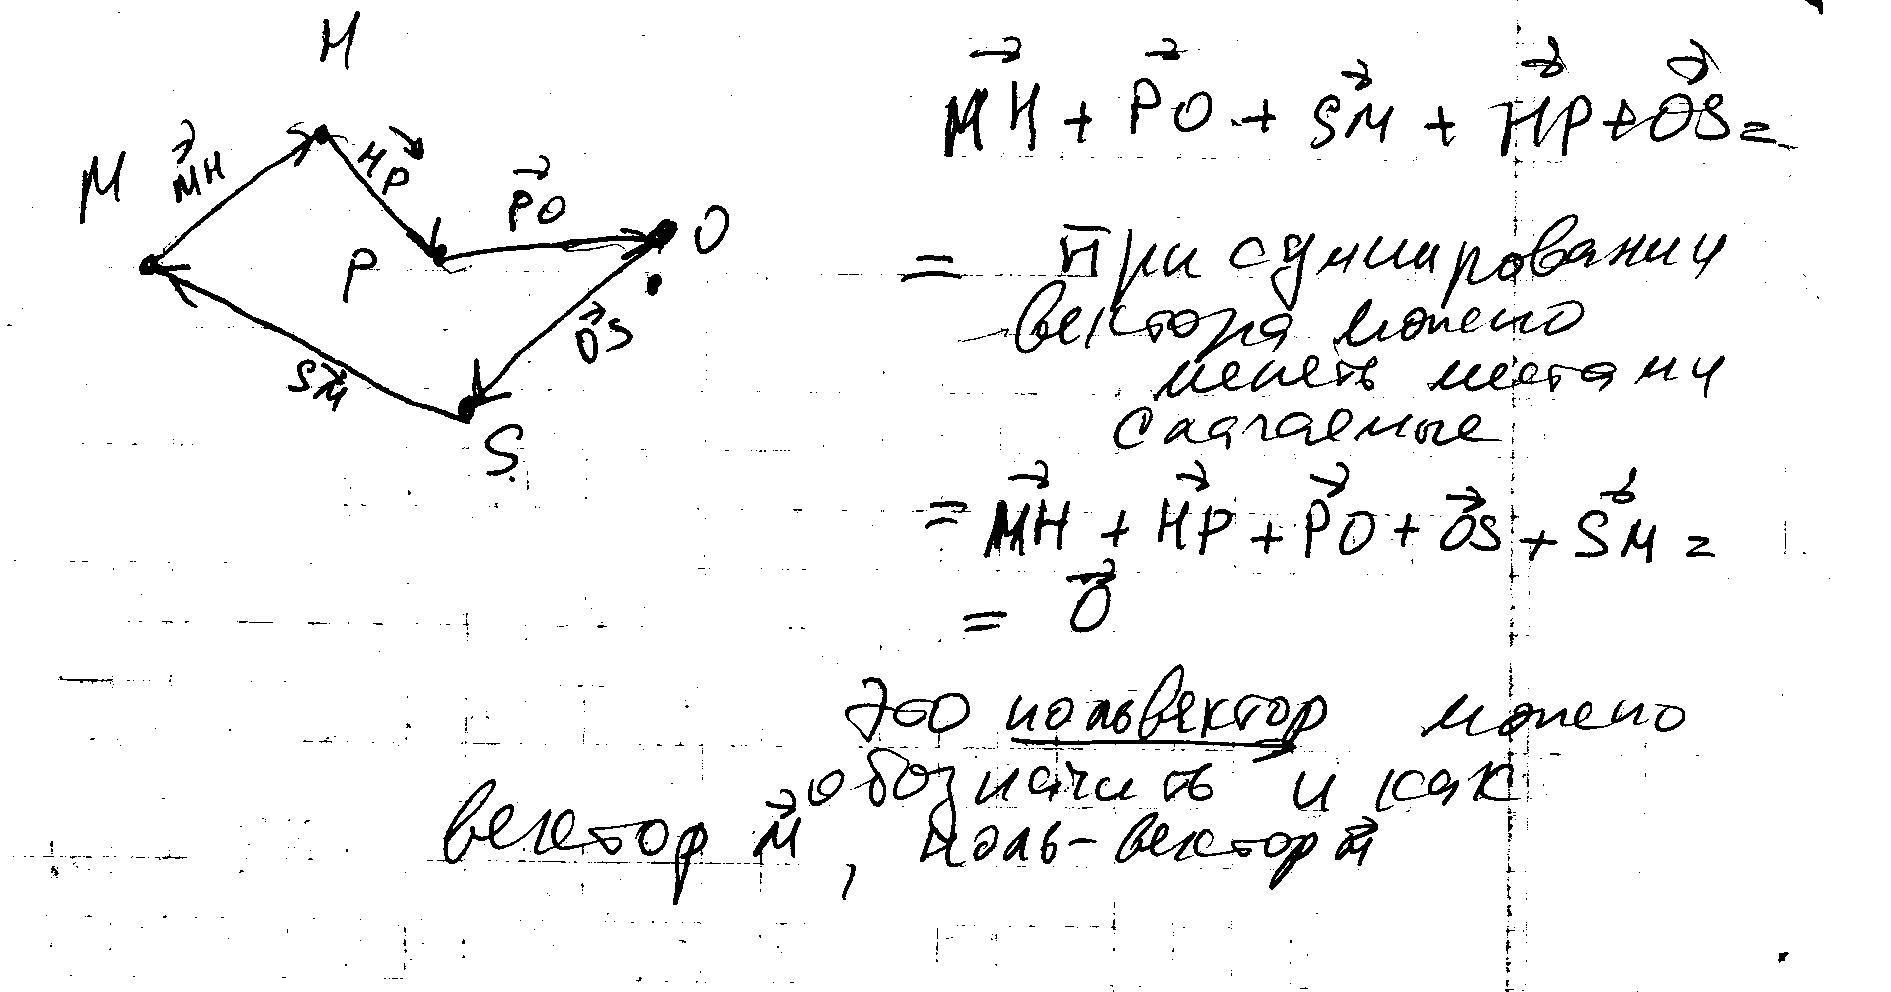 H
M
MH
HP
PO
O
P
OS
SM
S.
MH + PO + SM + HP + OS =
= При суммировании
вектора можно
менять местами
слагаемые
= MH + HP + PO + OS + SM =
= 0
Это нольвектор можно
обозначить и как
вектор M, ноль-вектор M